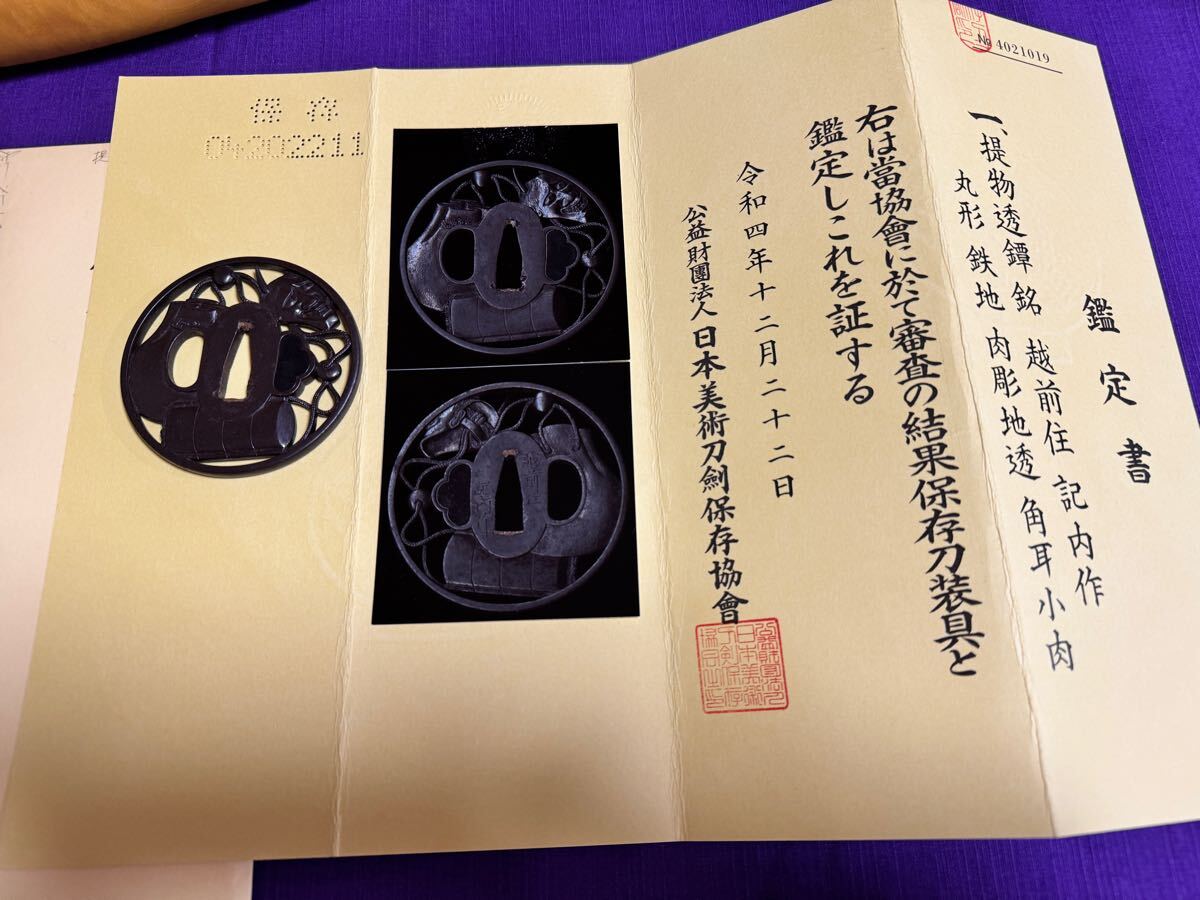 № 4021019
鑑定書
一、提物透鐔 銘 越前住 記内作
丸形 鉄地 肉彫地透 角耳小肉
右は當協會に於て審査の結果保存刀装具と
鑑定しこれを証する
令和四年十二月二十二日
公益財團法人 日本美術刀劍保存協會
保存
04202211